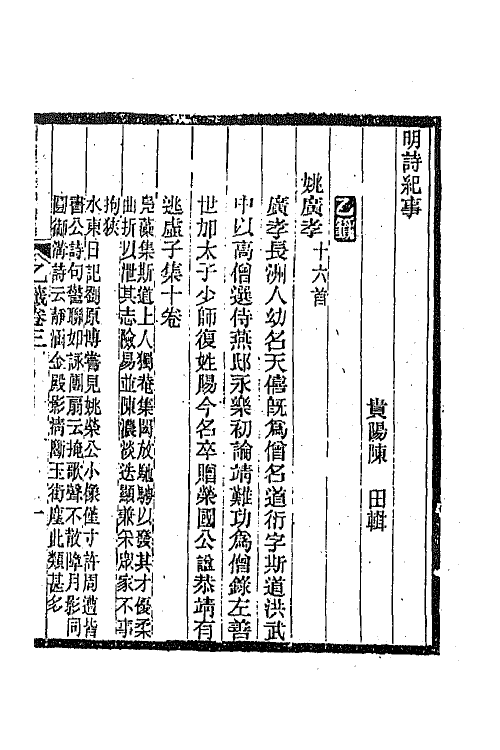 明詩紀事
貴陽陳　田輯
乙籤
姚廣孝十六首
廣孝長洲人幼名天僖旣爲僧名道衍字斯道洪武
中以高僧選侍燕邸永樂初論靖難功爲僧錄左善
世加太子少師復姓賜今名卒贈榮國公諡恭靖有
逃虛子集十卷
鳧藻集斯道上人獨菴集閎放馳騁以發其才優柔
曲折以泄其志險易並陳濃淡迭顯兼采眾家不事
拘狹
水東日記劉原博嘗見姚榮公小像僅寸許周遭皆
書公詩句鬬聯如詠團扇云掩歌聲不散障月影同
圓御溝詩云靜涵金殿影淸隔玉街塵此類甚多
乙籤卷三　一